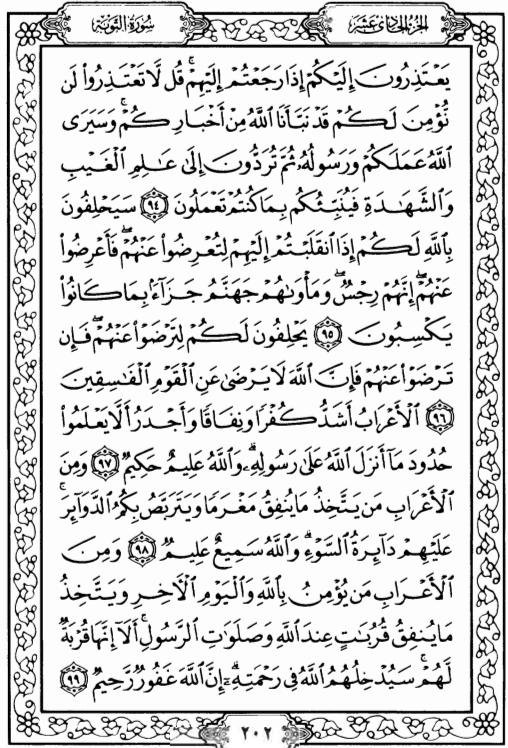 الجزء الحادي عشر
سورة التوبة
يَعْتَذِرُونَ إِلَيْكُمْ إِذَا رَجَعْتُمْ إِلَيْهِمْ ۚ قُل لَّا تَعْتَذِرُوا۟ لَن
نُّؤْمِنَ لَكُمْ قَدْ نَبَّأَنَا ٱللَّهُ مِنْ أَخْبَارِكُمْ ۚ وَسَيَرَى
ٱللَّهُ عَمَلَكُمْ وَرَسُولُهُۥ ثُمَّ تُرَدُّونَ إِلَىٰ عَـٰلِمِ ٱلْغَيْبِ
وَٱلشَّهَـٰدَةِ فَيُنَبِّئُكُم بِمَا كُنتُمْ تَعْمَلُونَ ٩٤ سَيَحْلِفُونَ
بِٱللَّهِ لَكُمْ إِذَا ٱنقَلَبْتُمْ إِلَيْهِمْ لِتُعْرِضُوا۟ عَنْهُمْ ۖ فَأَعْرِضُوا۟
عَنْهُمْ ۖ إِنَّهُمْ رِجْسٌ ۖ وَمَأْوَىٰهُمْ جَهَنَّمُ جَزَآءًۢ بِمَا كَانُوا۟
يَكْسِبُونَ ٩٥ يَحْلِفُونَ لَكُمْ لِتَرْضَوْا۟ عَنْهُمْ ۖ فَإِن
تَرْضَوْا۟ عَنْهُمْ فَإِنَّ ٱللَّهَ لَا يَرْضَىٰ عَنِ ٱلْقَوْمِ ٱلْفَـٰسِقِينَ
٩٦ ٱلْأَعْرَابُ أَشَدُّ كُفْرًا وَنِفَاقًا وَأَجْدَرُ أَلَّا يَعْلَمُوا۟
حُدُودَ مَآ أَنزَلَ ٱللَّهُ عَلَىٰ رَسُولِهِۦ ۗ وَٱللَّهُ عَلِيمٌ حَكِيمٌ ٩٧ وَمِنَ
ٱلْأَعْرَابِ مَن يَتَّخِذُ مَا يُنفِقُ مَغْرَمًا وَيَتَرَبَّصُ بِكُمُ ٱلدَّوَآئِرَ ۚ
عَلَيْهِمْ دَآئِرَةُ ٱلسَّوْءِ ۗ وَٱللَّهُ سَمِيعٌ عَلِيمٌ ٩٨ وَمِنَ
ٱلْأَعْرَابِ مَن يُؤْمِنُ بِٱللَّهِ وَٱلْيَوْمِ ٱلْـَٔاخِرِ وَيَتَّخِذُ
مَا يُنفِقُ قُرُبَـٰتٍ عِندَ ٱللَّهِ وَصَلَوَٰتِ ٱلرَّسُولِ ۚ أَلَآ إِنَّهَا قُرْبَةٌ
لَّهُمْ ۚ سَيُدْخِلُهُمُ ٱللَّهُ فِى رَحْمَتِهِۦٓ ۗ إِنَّ ٱللَّهَ غَفُورٌ رَّحِيمٌ ٩٩
٢٠٢